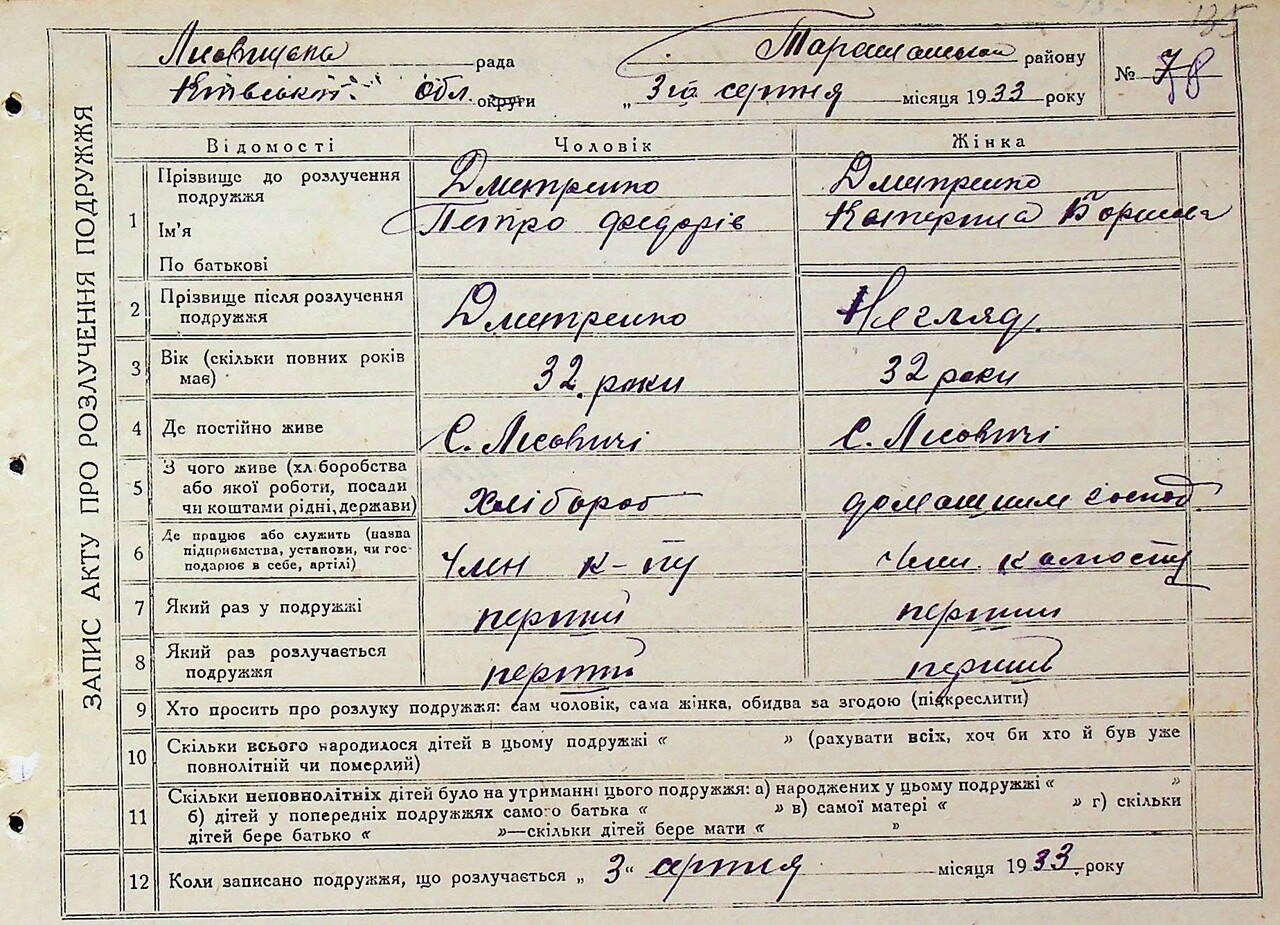 135
Лисовицька рада Таращанської району
Київської обл. округи „ 3го серпня місяця 1933 року № 78
ЗАПИС АКТУ ПРО РОЗЛУЧЕННЯ ПОДРУЖЖЯ
Відомості Чоловік Жінка
1 Прізвище до розлучення Дмитренко Дмитренко
подружжя
Ім'я Петро федорів Катерина Борисова
По батькові
2 Прізвище після розлучення Дмитренко Негляд.
подружжя
3 Вік (скільки повних років 32 роки 32 роки
має)
4 Де постійно живе С. Лісовичі С. Лісовичі
5 З чого живе (хліборобства
або якої роботи, посади Хлібороб домашним господ.
чи коштами рідні, держави)
Де працює або служить (назва
6 підприємства, установи, чи гос- Член к-пу Член колгоспу
подарює в себе, артілі)
7 Який раз у подружжі перший перший
8 Який раз розлучається перший перший
подружжя
9 Хто просить про розлуку подружжя: сам чоловік, сама жінка, обидва за згодою (підкреслити)
10 Скільки всього народилося дітей в цьому подружжі « » (рахувати всіх, хоч би хто й був уже
повнолітній чи померлий)
11 Скільки неповнолітніх дітей було на утриманні цього подружжя: а) народжених у цьому подружжі « »
б) дітей у попередніх подружжях самого батька « » в) самої матері « » г) скільки
дітей бере батько « »—скільки дітей бере мати « »
12 Коли записано подружжя, що розлучається „ 3“ серпня місяця 1933 року